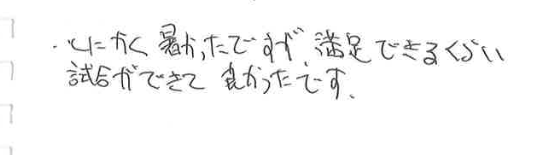 ・とにかく暑かったですが、満足できるくらい
試合ができて良かったです。